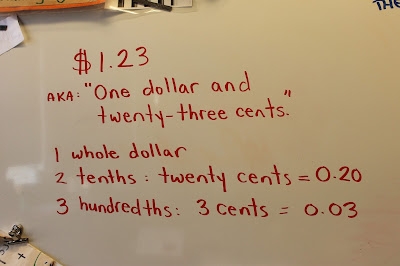 THE
$1.23
AKA: "One dollar and
twenty-three cents."
1 whole dollar
2 tenths : twenty cents = 0.20
3 hundredths: 3 cents = 0.03